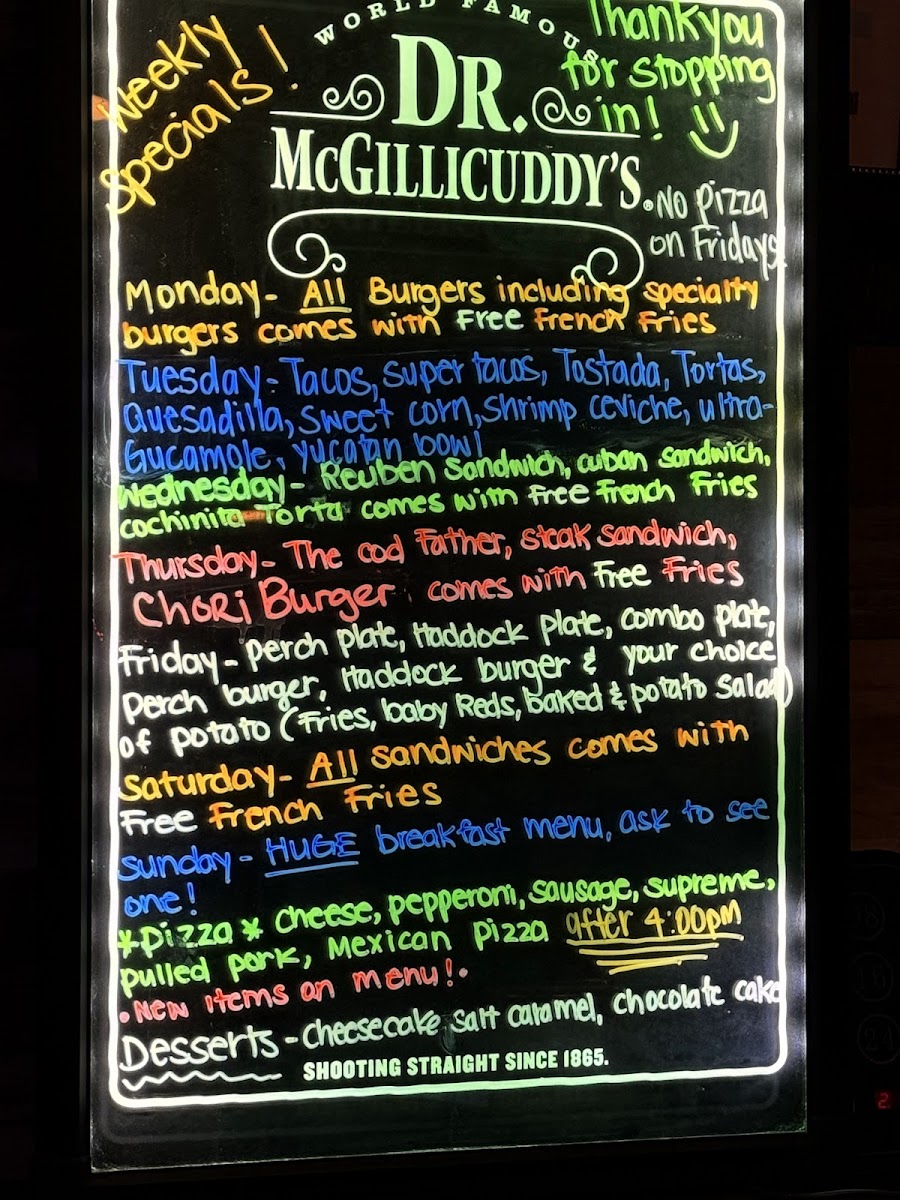 Weekly
Specials!
WORLD FAMOUS
DR.
McGILLICUDDY'S®
Thankyou
for stopping
in!
No pizza
on Fridays
Monday- All Burgers including specialty
burgers comes with Free French Fries
Tuesday- Tacos, super tacos, Tostada, Tortas,
Quesadilla, sweet corn, shrimp ceviche, ultra-
Gucamole, yucatan bowl
Wednesday- Reuben sandwich, cuban sandwich,
cochinita Torta comes with Free French Fries
Thursday- The cod Father, steak sandwich,
Chori Burger comes with Free Fries
Friday- perch plate, Haddock plate, combo plate,
perch burger, Haddock burger & your choice
of potato (Fries, baby Reds, baked & potato salad)
Saturday- All sandwiches comes with
Free French Fries
Sunday- HUGE breakfast menu, ask to see
one!
*pizza* cheese, pepperoni, sausage, supreme,
pulled pork, Mexican pizza after 4:00pm
• New items on menu! •
Desserts- cheesecake salt caramel, chocolate cake
SHOOTING STRAIGHT SINCE 1865.